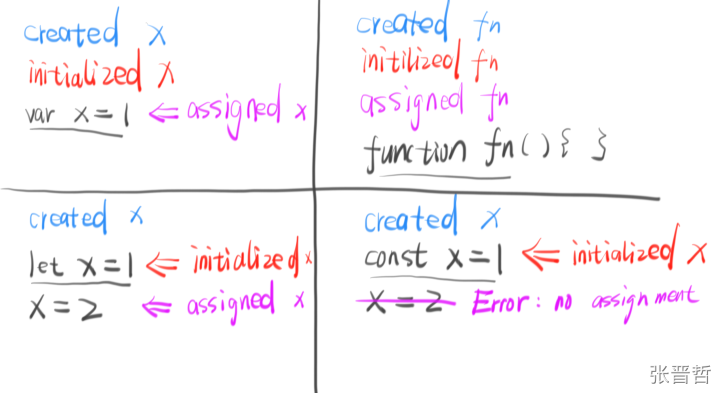 created x
initialized x
var x=1 ⇐ assigned x
created fn
initilized fn
assigned fn
function fn(){ }
created x
let x=1 ⇐ initialized x
x=2 ⇐ assigned x
created x
const x=1 ⇐ initialized x
x=2 Error: no assignment
张晋哲